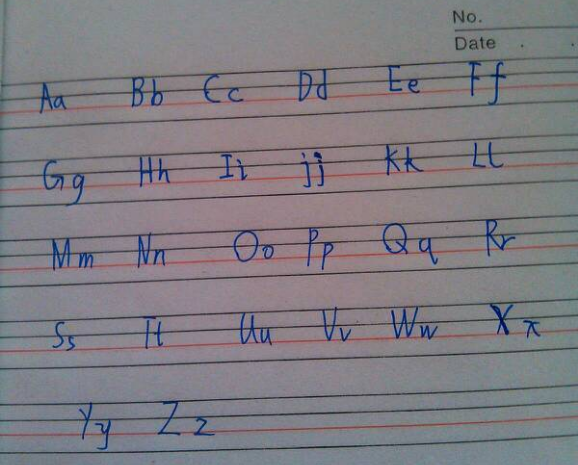 No.
Date
Aa Bb Cc Dd Ee Ff
Gg Hh Ii jj Kk Ll
Mm Nn Oo Pp Qq Rr
Ss Tt Uu Vv Ww Xx
Yy Zz